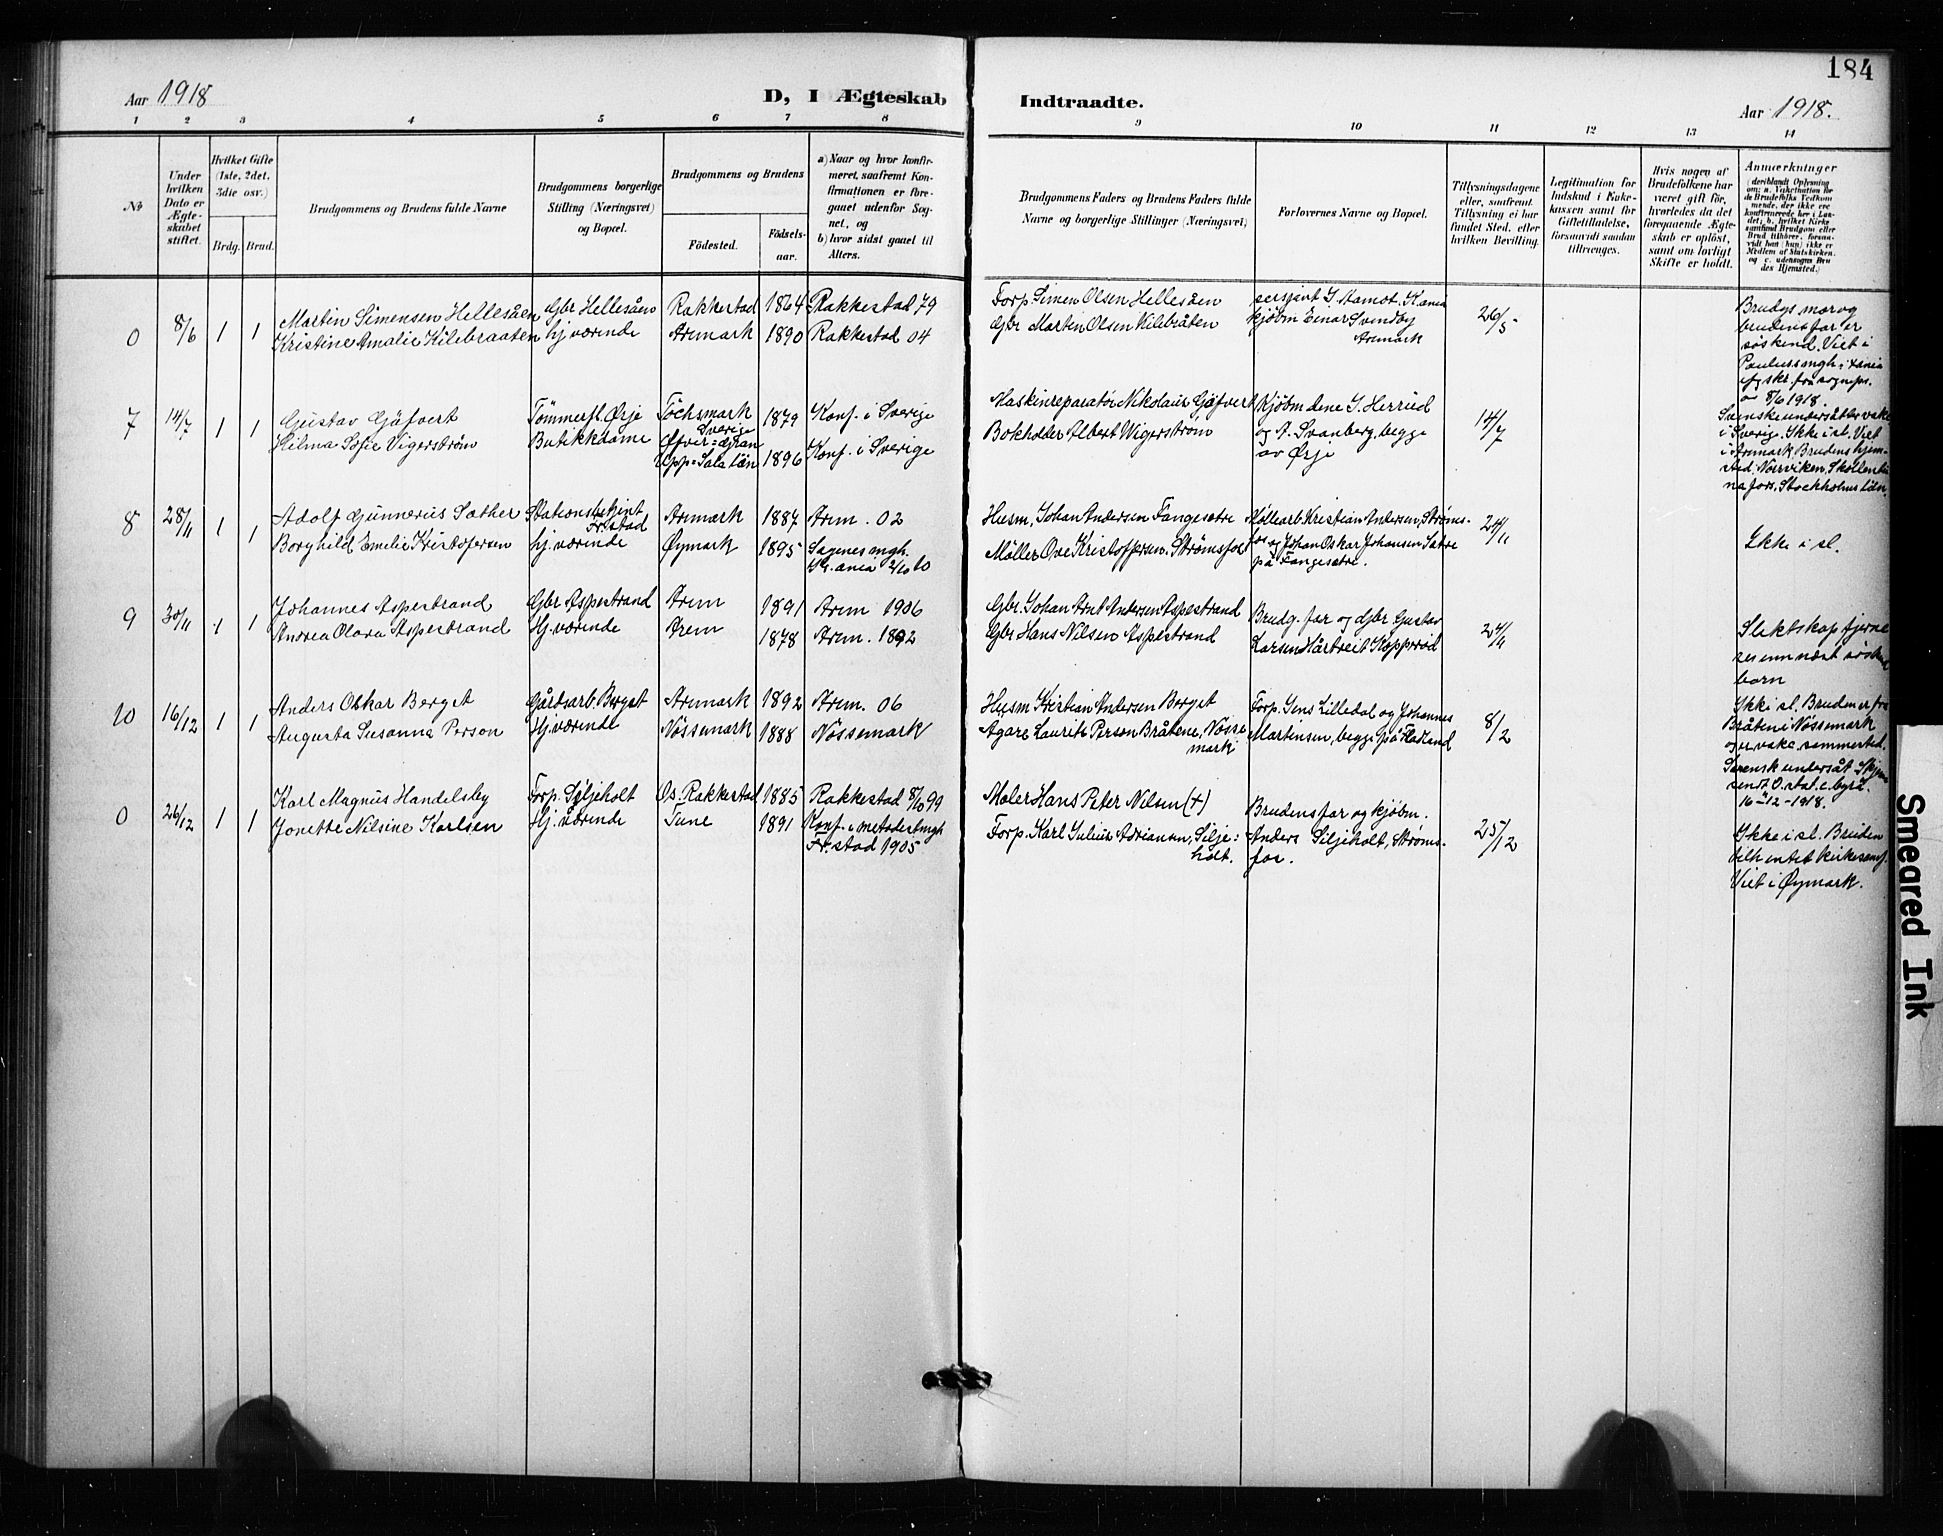 184
Aar 1918
D, I Ægteskab Indtraadte.
Aar 1918.
1 2 3 4 5 6 7 8 9 10 11 12 13 14
№
Under hvilken Dato er Ægteskabet stiftet.
Hvilket Gifte (1ste, 2det, 3die osv.)
Brdg. Brud.
Brudgommens og Brudens fulde Navne
Brudgommens borgerlige Stilling (Næringsvei) og Bopæl.
Brudgommens og Brudens
Födested.
Födselsaar.
a) Naar og hvor konfirmeret, saafremt Konfirmationen er foregaaet udenfor Sognet, og
b) hvor sidst gaaet til Alters.
Brudgommens Faders og Brudens Faders fulde Navne og borgerlige Stillinger (Næringsvei)
Forlovernes Navne og Bopæl.
Tillysningsdagene eller, saafremt Tillysning ei har fundet Sted, efter hvilken Bevilling.
Legitimation for Indskud i Enkekassen samt for Giftetilladelse, forsaavidt saadan tiltrænges.
Hvis nogen af Brudefolkene har været gift för, hvorledes da det foregaaende Ægteskab er oplöst, samt om lovligt Skifte er holdt.
Anmærkninger
0 8/6 1 1
Martin Simensen Hellesåen Gbr Hellesåen Rakkestad 1864 Rakkestad 79
Kristine Amalie Kilebraaten hj. værende Aremark 1890 Rakkestad 04
Forp. Simen Olsen Hellesåen
Gbr Martin Olsen Kilebråten
kjöbm Einar Svendby
Aremark
26/5
Brudgs mor og
brudens far er
søskend. Viet i
8/6 1918.
7 14/7 1 1
Gustav Gäfvert Tömmerfl. Ørje Töcksmark Sverige 1879 Konf. i Sverige
Hilma Sofie Vigerström Butikkdame 1896 Konf. i Sverige
Maskinreparatör Nikolaus Gäfvert
Bokholder Albert Wigerstrøm
Kjöbmdene J. Herrud
og A. Svanberg, begge
av Ørje
14/7
i Sverige. Ikke i sl. Viet
i Aremark. Brudens hjem-
Stockholms län.
8 28/11 1 1
Adolf Gunnerius Sæther Stationsbetjent Fr.stad Aremark 1887 Arem. 02
Borghild Emelie Kristofersen hj. værende Øymark 1895 Sagenes mgh.
Kr.ania 2/10 10
Husm. Johan Andersen Fangesætre
Möller Ove Kristoffersen. Strømsfos
Møllearb. Kristian Andersen, Strøms-
fos og Johan Oskar Johansen Sætre
på Fangesætre.
24/11
Ikke i sl.
9 30/11 1 1
Johannes Aspestrand Gbr. Aspestrand Arem 1891 Arem 1906
Andrea Olava Aspestrand Hj. værende Arem 1878 Arem. 1892
Gbr. Johan Arnt Andersen Aspestrand
Gbr. Hans Nilsen Aspestrand
Brudg. far og gbr. Gustav
Larsen Hårtveit Kopperød
24/11
Slektskap fjerne
re enn næst søsken
barn
10 16/12 1 1
Anders Oskar Berget Gårdsarb. Berget Aremark 1892 Arem. 06
Augusta Susanna Person Hj. værende Nössemark 1888 Nössemark
Husm Kristian Andersen Berget
Ågare Laurits Person Bråtene, Nösse
mark
Forp. Jens Lilledal og Johannes
Martinsen, begge på
8/12
Ikke i sl. Bruden er fra
Bråten i Nössemark
Svensk undersåt.
16-12-1918.
0 26/12 1 1
Karl Magnus Handelsby Forp. Siljeholt Os. Rakkestad 1885 Rakkestad 8/10 99
Jonette Nilsine Karlsen Hj. værende Tune 1891 Konf. i metodistmgh
Fr.stad 1905
Maler Hans Peter Nilsen (+)
Forp. Karl Julius Adriansen, Silje-
holt.
Brudens far og kjöbm.
Anders Siljeholt, Strøms-
fos.
25/12
Ikke i sl. Bruden
tilh. intet kirkesamf.
Viet i Øymark.
Smeared Ink